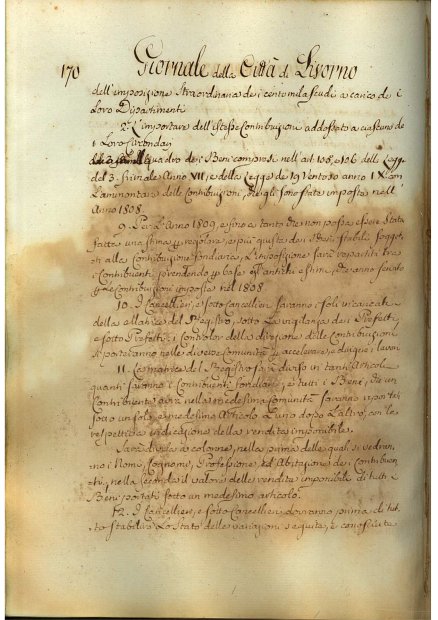 170 Giornale della Città di Livorno
dell'imposizione Straordinaria dei centomila scudi a carico de i
Loro Dipartimenti
2. L'importare dell'istesse Contribuzioni addossato a ciascuno de
i Loro Circondarj
Quadro dei Beni compresi nell'art. 105, e 106 della Legge
del 3. Frimale Anno VII, e della Legge de 19 Ventoso anno
L'ammontare delle Contribuzioni, che gli sono state imposte nell'
Anno 1808.
9. Per L'Anno 1809, e sino a tanto che non possa essere stata
fatta una stima regolare, e più giusta dei Beni stabili sogget-
ti alla Contribuzione fondiaria, L'imposizione sarà repartita tra
i Contribuenti, prendendo p base gl'antichi estimi, che anno servito
p Le Contribuzioni imposte nel 1808.
10. I Cancellieri, e sotto Cancellieri saranno i soli incaricati
della Matrice del Registro, sotto La vigilanza dei Prefetti,
e sotto Prefetti; i Controlor della direzione delle Contribuzioni
si porteranno nelle diverse Comunità p accelerare, e dirigere i lavori
11. La matrice del Registro sarà divisa in tanti Articoli
quanti saranno i Contribuenti fondiarj, e tutti i Beni, che un
Contribuente avrà nella medesima Comunità saranno riportati
sotto un solo, e medesimo Articolo L'uno dopo L'altro, con la
respettiva indicazione della rendita imponibile.
Sarà divisa in colonne, nella prima delle quali si vedran-
no i Nomi, Cognomi, Professione, ed Abitazione dei Contribuen-
ti, nella seconda il valore della rendita imponibile di tutti i
Beni portati sotto un medesimo articolo.
12. I Cancellieri, e sotto Cancellieri dovranno prima di tut-
to stabilire Lo stato delle variazioni seguite, e conosciute